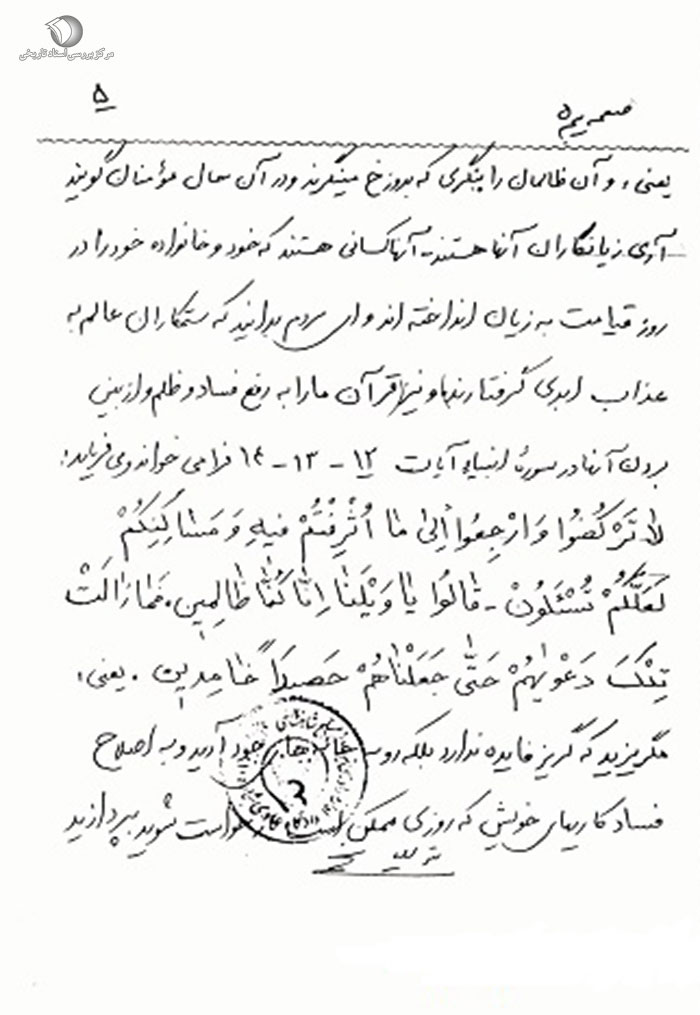 مرکز بررسی اسناد تاریخی
۵
ضمیمه
یعنی، و آن ظالمان را بنگری که بدوزخ مینگرند و در آن حال مؤمنان گویند
آری زیانکاران آنها هستند - آنها کسانی هستند که خود و خانواده خود را در
روز قیامت به زیان انداخته اند و ای مردم بدانید که ستمکاران عالم به
عذاب ابدی گرفتارند، و نیز قرآن ما را به رفع فساد و ظلم و از بین
بردن آنها در سورهٔ انبیاء آیات ۱۲ - ۱۳ - ۱۴ فرا می خواند و می فرماید:
لَا تَرْكُضُوا وَارْجِعُوا إِلَىٰ مَا أُتْرِفْتُمْ فِيهِ وَ مَسَاكِنِكُمْ
لَعَلَّكُمْ تُسْئَلُونَ - قَالُوا يَا وَيْلَنَا إِنَّا كُنَّا ظَالِمِينَ، فَمَا زَالَتْ
تِلْكَ دَعْوٰيهُمْ حَتَّىٰ جَعَلْنَاهُمْ حَصِيدًا خَامِدِينَ. یعنی،
مگریزید که گریز فایده ندارد بلکه رو به خانه ها خود آرید و به اصلاح
فساد کاریهای خویش که روزی ممکن است شوید بپردازید